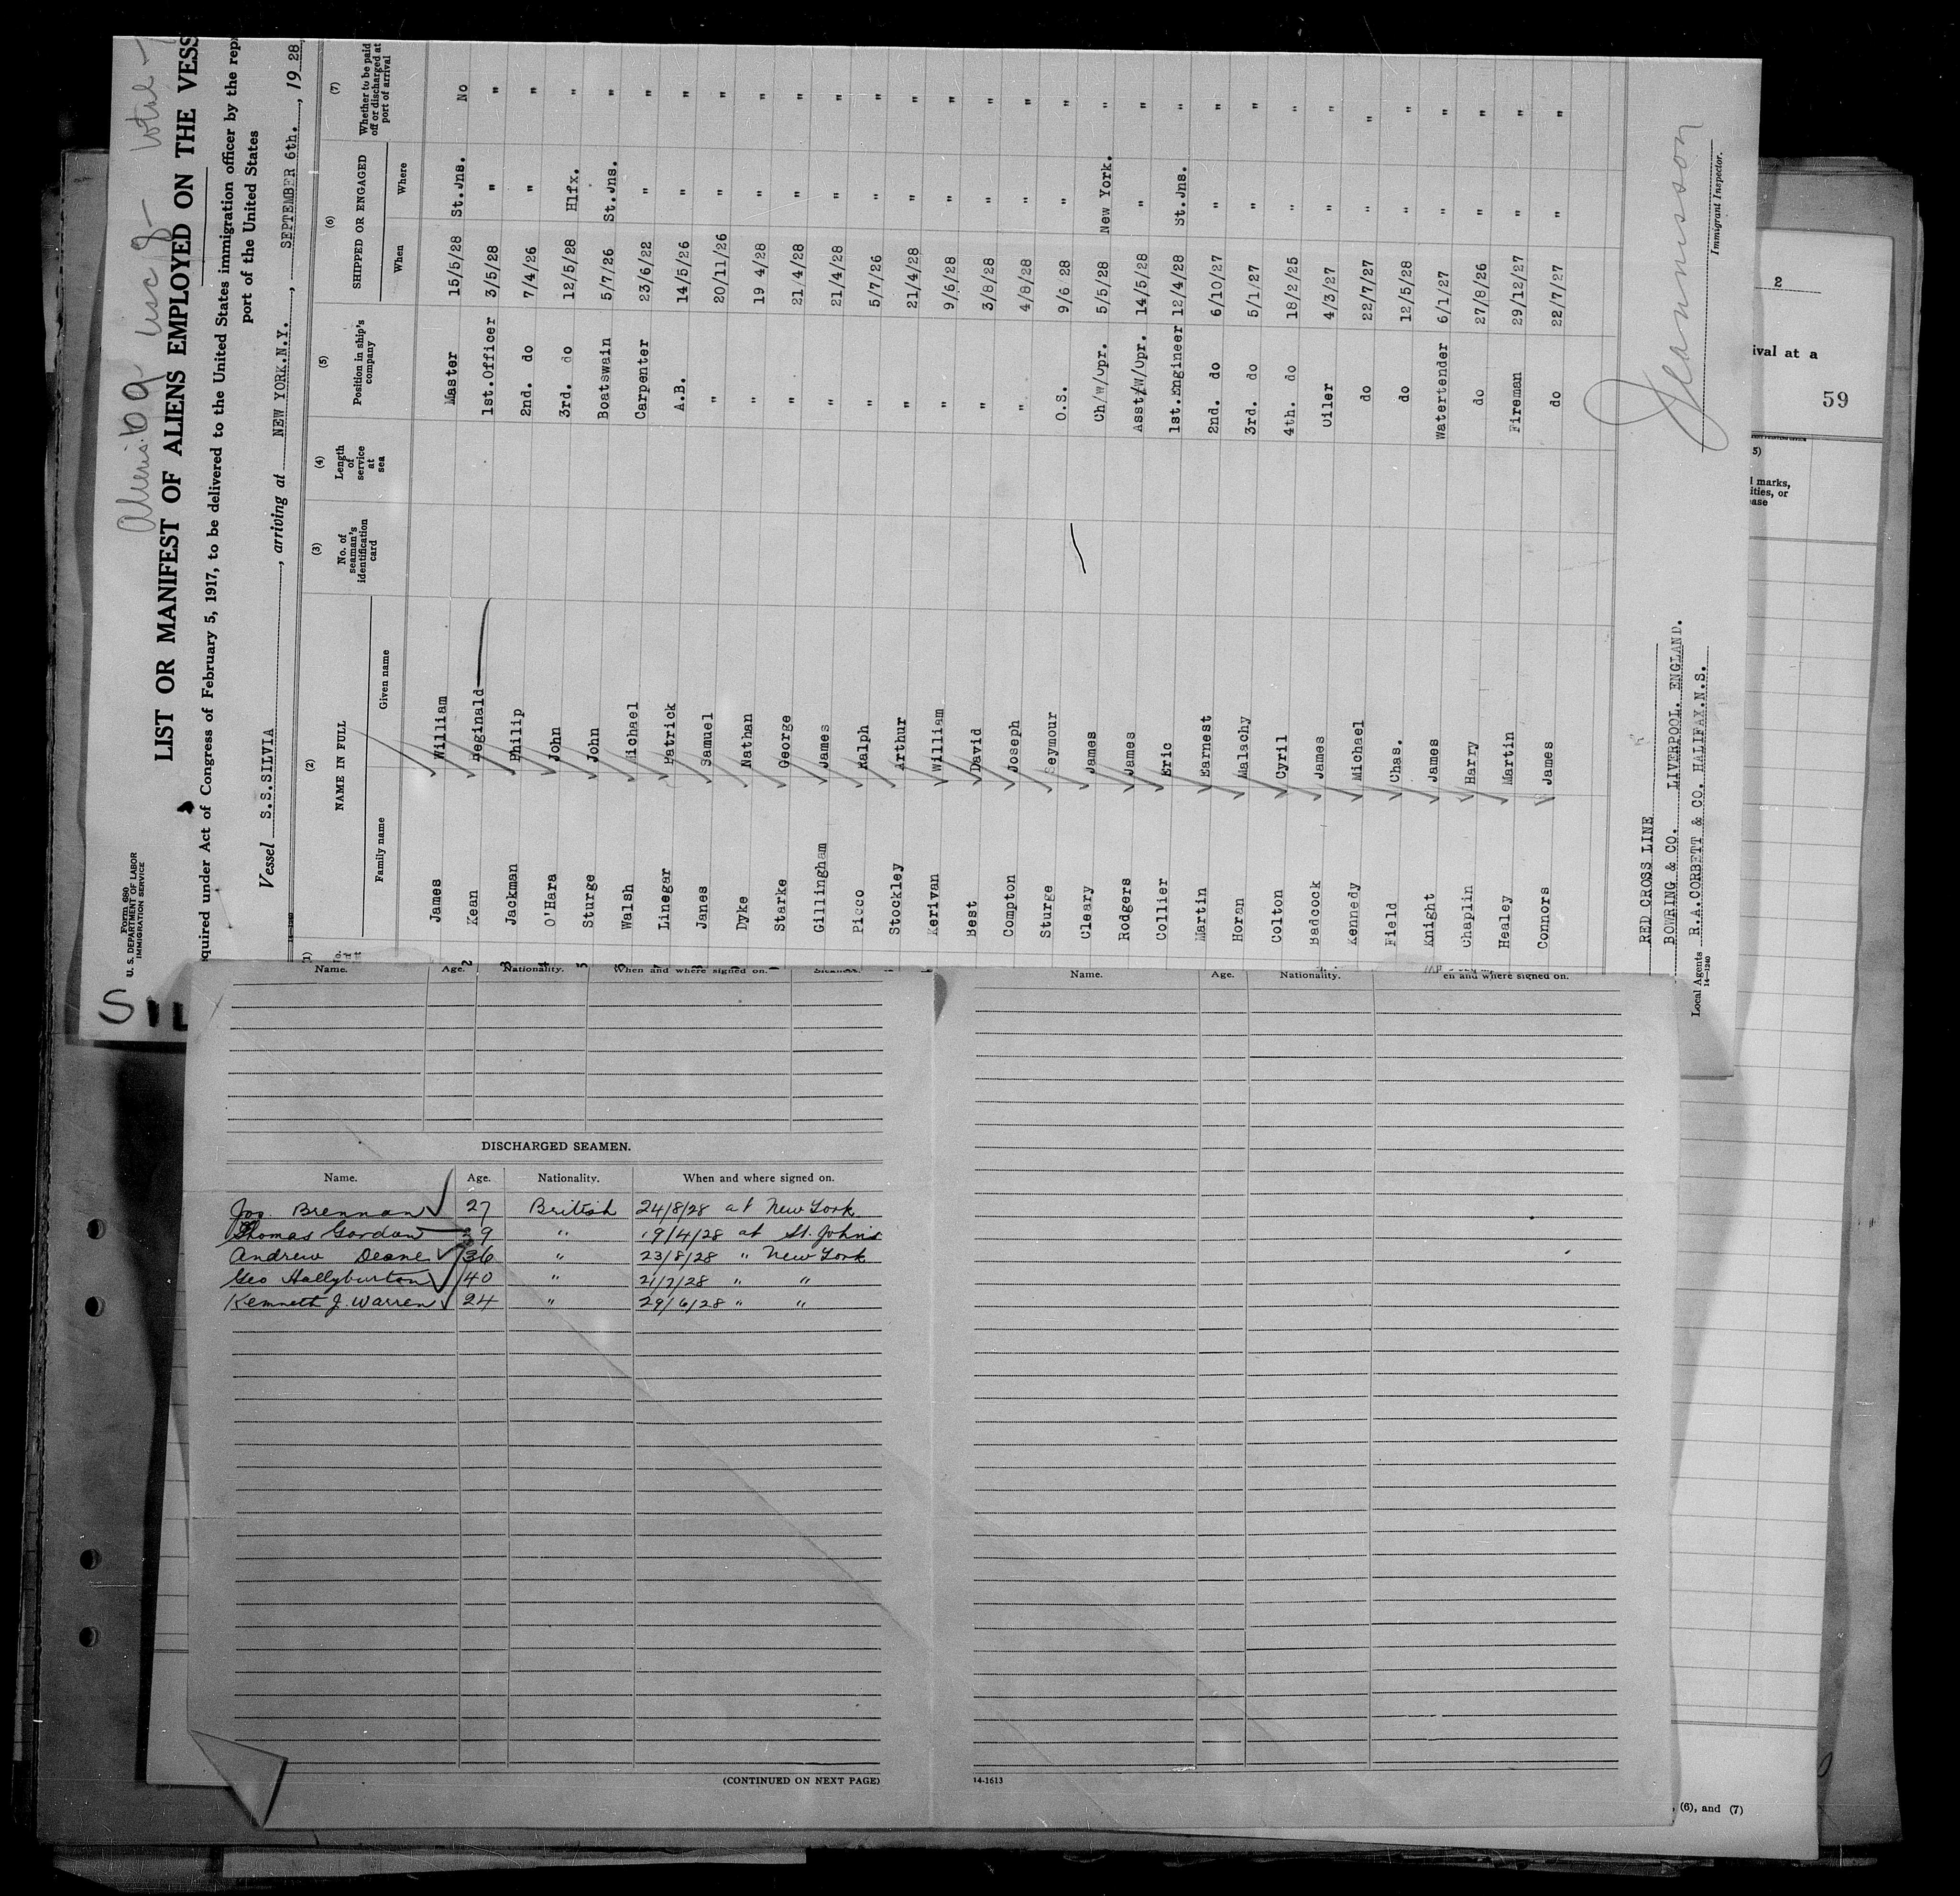 LIST OR MANIFEST OF ALIENS EMPLOYED ON THE VESS
Form 680
U. S. DEPARTMENT OF LABOR
IMMIGRATION SERVICE
quired under Act of Congress of February 5, 1917, to be delivered to the United States immigration officer by the rep
port of the United States
Vessel S.S.SILVIA, arriving at NEW YORK.N.Y., SEPTEMBER 6th., 19 28,
(2) (3) (4) (5) (6) (7)
NAME IN FULL No. of seaman's identification card Length of service at sea Position in ship's company SHIPPED OR ENGAGED Whether to be paid off or discharged at port of arrival
Family name Given name When Where
James William Master 15/5/28 St.Jns. No
Kean Reginald 1st.Officer 3/5/28 " "
Jackman Philip 2nd. do 7/4/26 " "
O'Hara John 3rd. do 12/5/28 Hlfx. "
Sturge John Boatswain 5/7/26 St.Jns. "
Walsh Michael Carpenter 23/6/22 " "
Linegar Patrick A.B. 14/5/26 " "
Janes Samuel " 20/11/26 " "
Dyke Nathan " 19 4/28 " "
Starke George " 21/4/28 " "
Gillingham James " 21/4/28 " "
Picco Ralph " 5/7/26 " "
Stockley Arthur " 21/4/28 " "
Kerivan William " 9/6/28 " "
Best David " 3/8/28 " "
Compton Joseph " 4/8/28 " "
Sturge Seymour O.S. 9/6 28 " "
Cleary James Ch/w/opr. 5/5/28 New York. "
Rodgers James Asst/W/opr. 14/5/28 " "
Collier Eric 1st.Engineer 12/4/28 St.Jns. "
Martin Earnest 2nd. do 6/10/27 " "
Horan Malachy 3rd. do 5/1/27 " "
Colton Cyril 4th. do 18/2/25 " "
Badcock James Oiler 4/3/27 " "
Kennedy Michael do 22/7/27 " "
Field Chas. do 12/5/28 " "
Knight James Watertender 6/1/27 " "
Chaplin Harry do 27/8/26 " "
Healey Martin Fireman 29/12/27 " "
Connors James do 22/7/27 " "
RED CROSS LINE
BOWRING & CO. LIVERPOOL. ENGLAND.
Local Agents R.A.CORBETT & CO. HALIFAX.N.S.
14—1240
Immigrant Inspector.
SIL
2
ival at a
59
5)
l marks,
ities, or
ease
Name. Age. Nationality. When and where signed on.
Name. Age. Nationality. en and where signed on.
DISCHARGED SEAMEN.
Name. Age. Nationality. When and where signed on.
Jos. Brennan 27 British 24/8/28 at New York
Thomas Gordon 39 " 19/4/28 at St. Johns
Andrew Deane 36 " 23/8/28 " New York
Geo Hallyburton 40 " 21/7/28 " "
Kenneth J. Warren 24 " 29/6/28 " "
(CONTINUED ON NEXT PAGE)
14-1613
, (6), and (7)